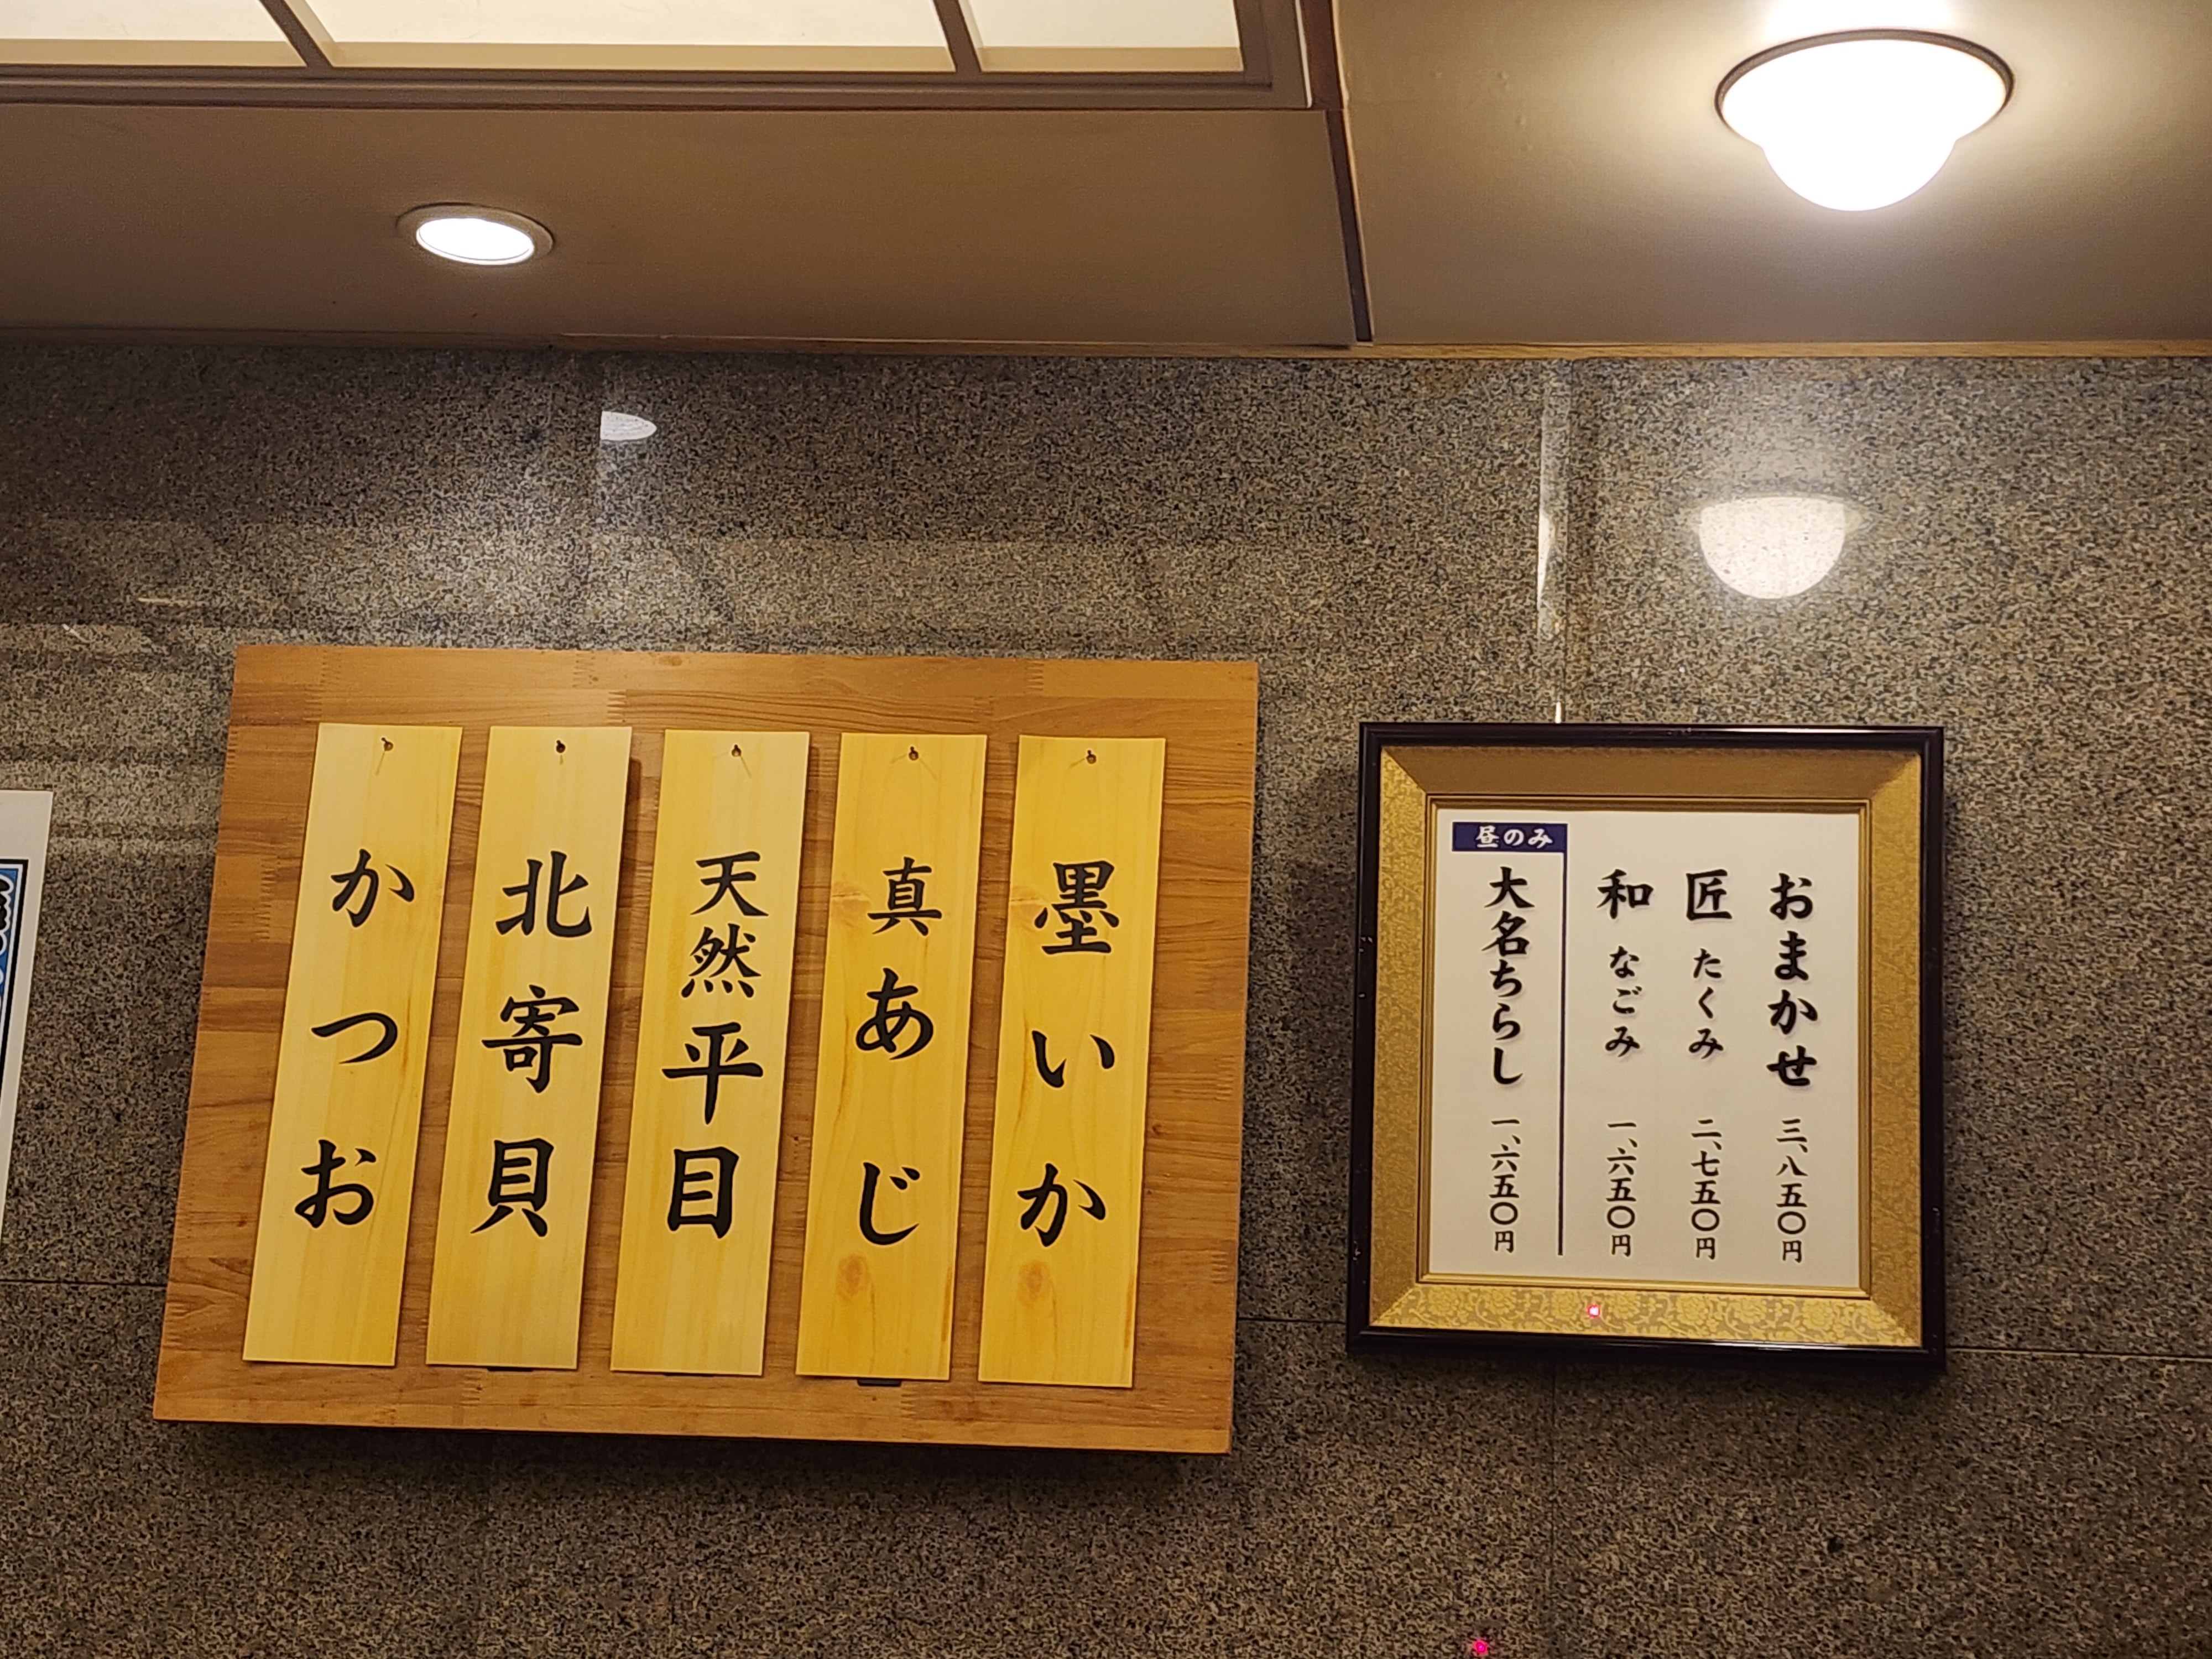 墨いか
真あじ
天然平目
北寄貝
かつお
おまかせ 三、八五〇円
匠 たくみ 二、七五〇円
和 なごみ 一、六五〇円
昼のみ
大名ちらし 一、六五〇円